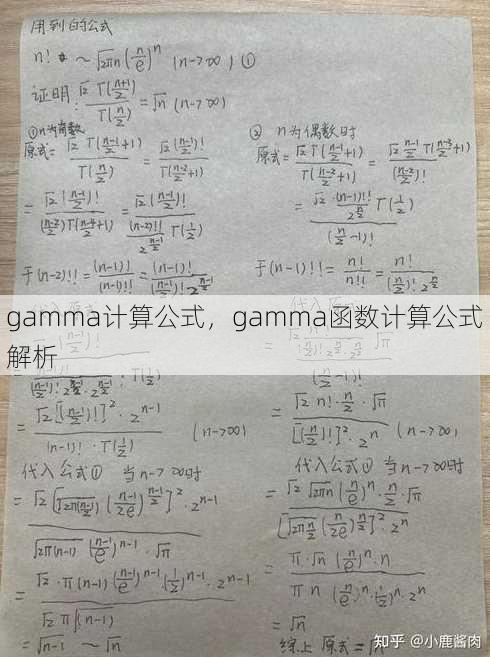 用到的公式
n! ~ √2πn (n/e)^n (n->∞) ①
证明: √2 Γ((n+1)/2) / Γ(n/2) = √n (n->∞)
① n为奇数
原式= √2 Γ((n-1)/2+1) / Γ(n/2) = √2 ((n-1)/2)! / Γ((n-2)/2+1)
= √2 ((n-1)/2)! / ((n-2)/2) Γ((n-4)/2+1) = √2 ((n-1)/2)! / (n-2)!!/2^((n-1)/2) Γ(1/2)
于(n-2)!! = (n-1)! / (n-1)!! = (n-1)! / ((n-1)/2)! 2^((n-1)/2)
= √2 [((n-1)/2)!]² · 2^(n-1) / (n-1)! · Γ(1/2) (n->∞)
代入公式① 当n->∞时
= √2 [√2π((n-1)/2) ((n-1)/2e)^((n-1)/2)]² · 2^(n-1) / √2π(n-1) ((n-1)/e)^(n-1) · √π
= √2 · π(n-1) ((n-1)/e)^(n-1) (1/2)^(n-1) · 2^(n-1) / √2 π √(n-1)
= √n-1 ~ √n
② n为偶数时
原式= √2 Γ((n-1)/2+1) / Γ((n-2)/2+1) = √2 (n-1)/2 Γ((n-3)/2+1) / ((n-2)/2)!
= √2 · (n-1)!!/2^(n/2) Γ(1/2) / (n/2-1)!
于(n-1)!! = n!/n!! = n! / (n/2)! 2^(n/2)
代入原式
= √2 n! · n/2 · √π / [(n/2)!]² · 2^n (n->∞)
代入公式① 当n->∞时
= √2 √2πn (n/e)^n · n/2 · √π / [√2π n/2 (n/2e)^(n/2)]² · 2^n
= π · √n (n/e)^n · n / π n (n/e)^n · (1/2)^n · 2^n
= √n
综上 原式 = √n
gamma计算公式，gamma函数计算公式
解析
知乎 @小鹿酱肉